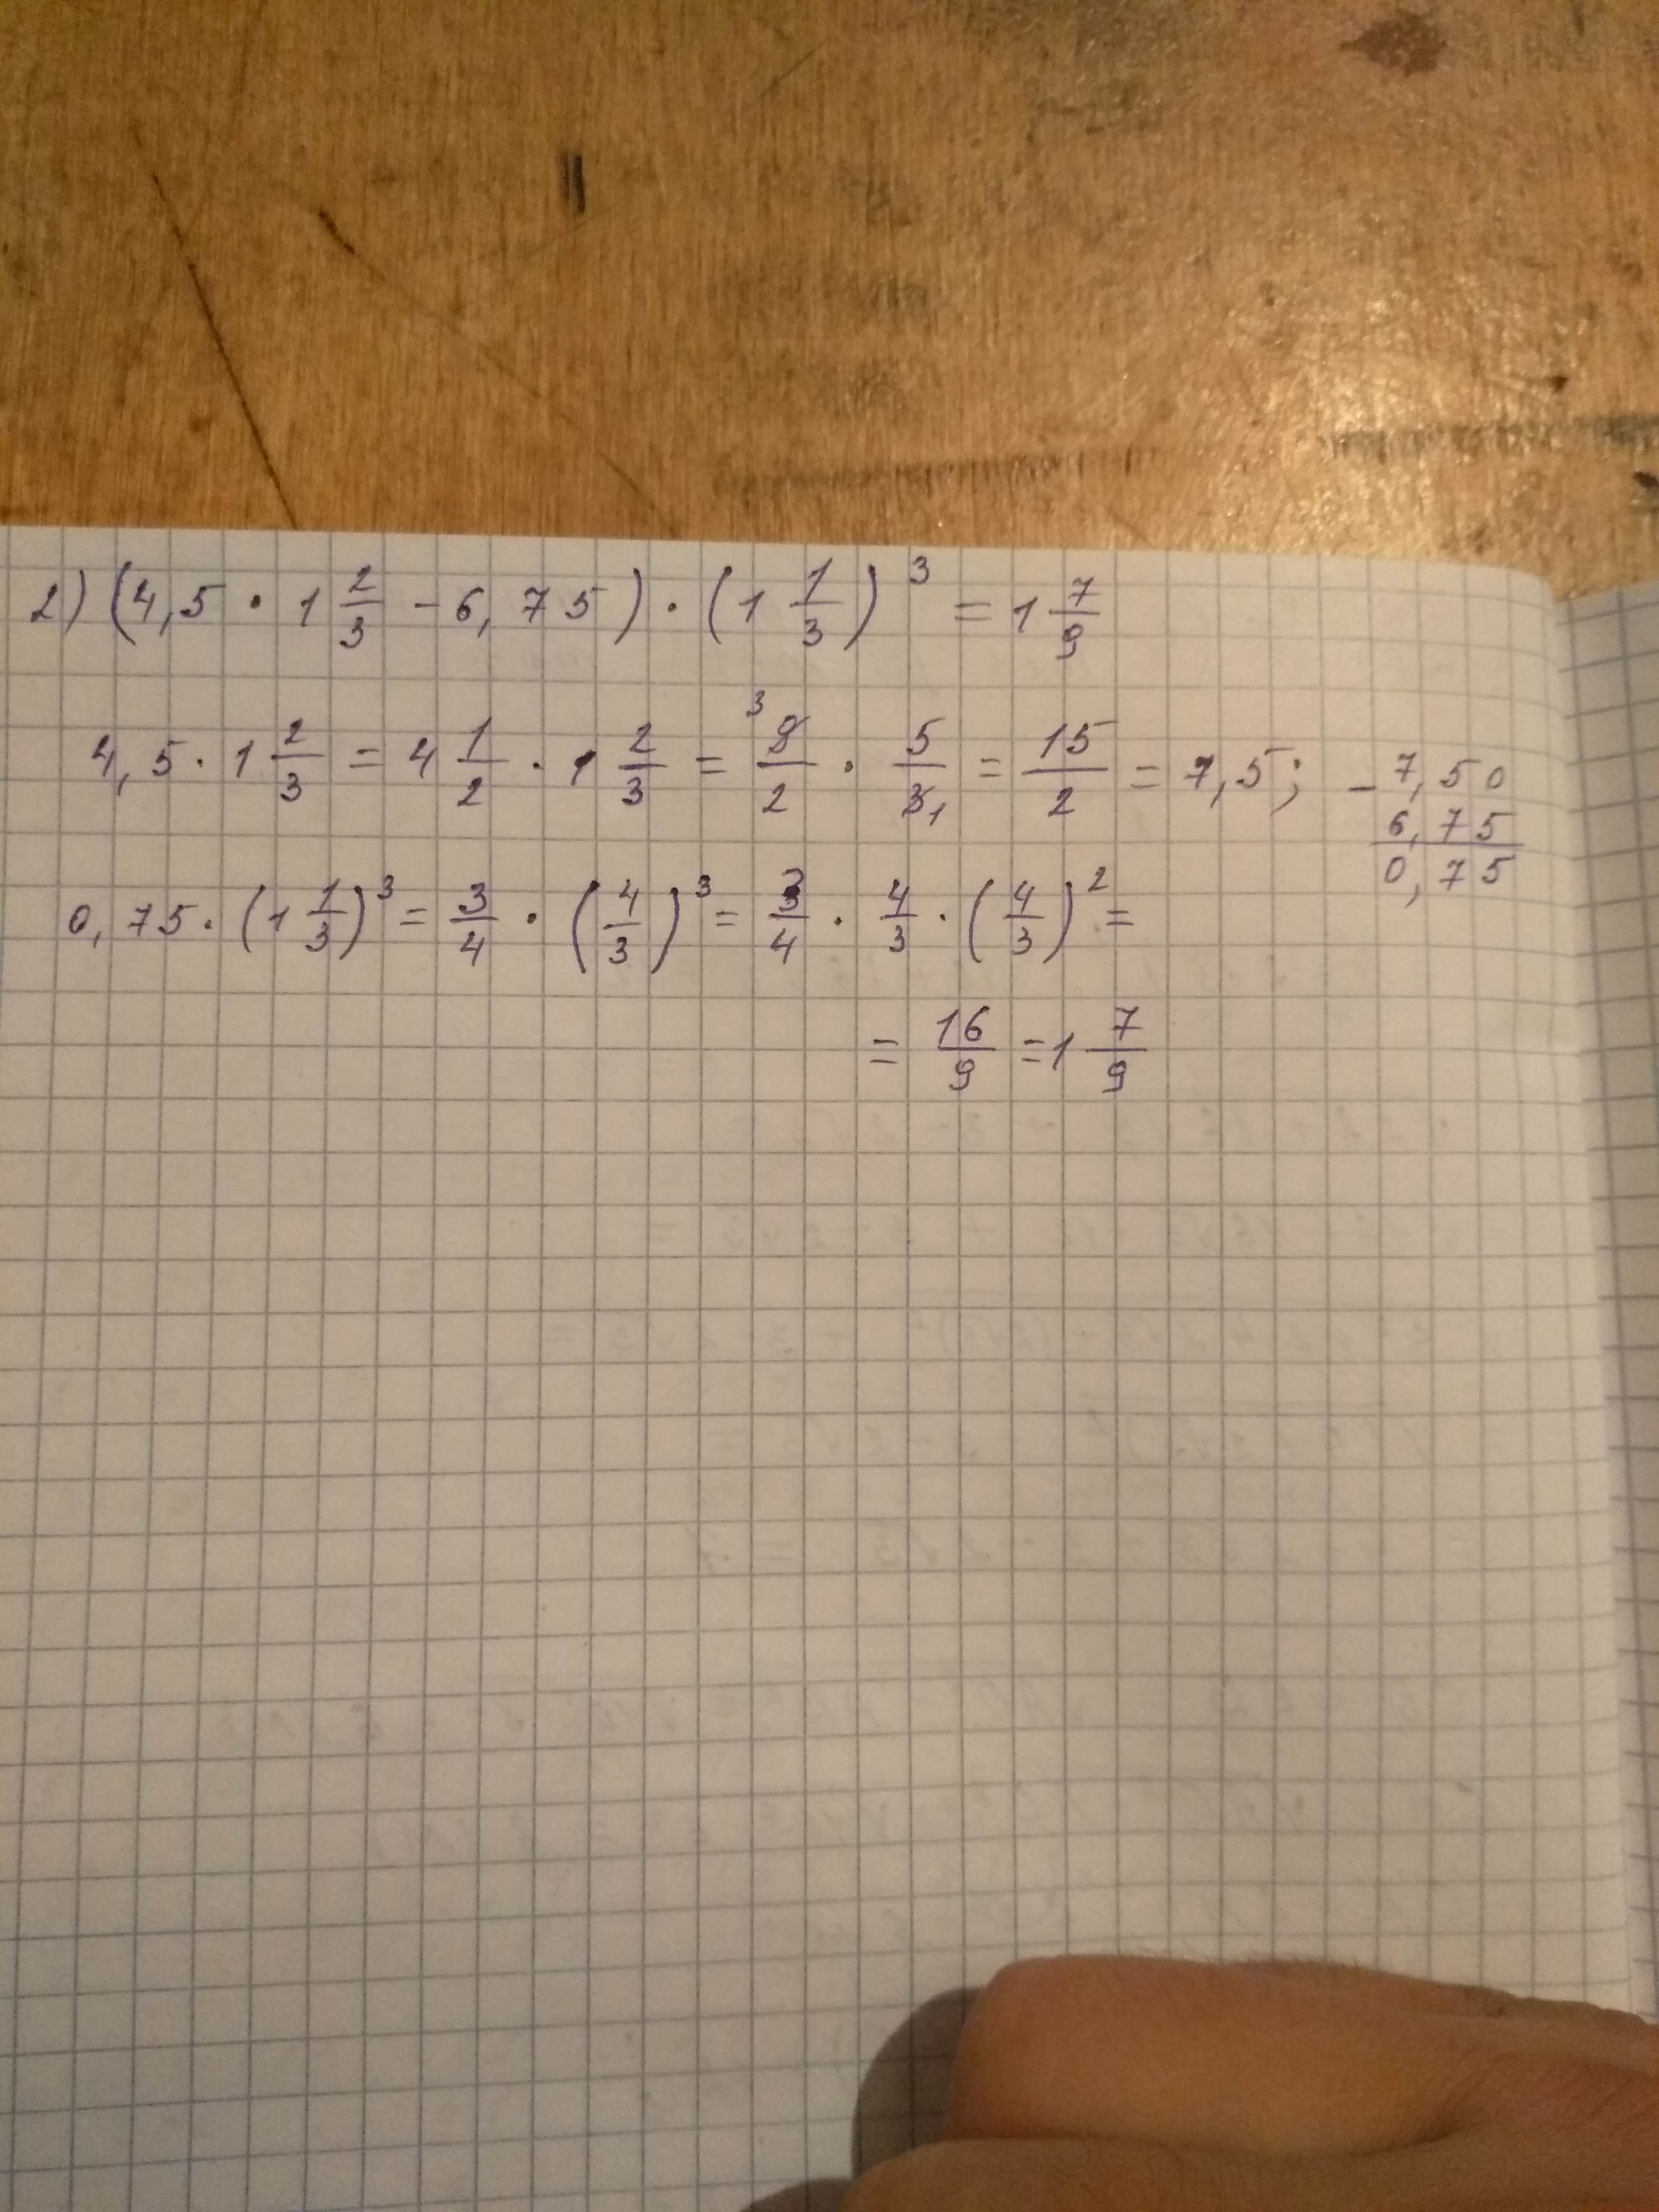 2) (4,5 · 1 2/3 - 6,75) · (1 1/3)³ = 1 7/9
4,5 · 1 2/3 = 4 1/2 · 1 2/3 = ³9/2 · 5/3₁ = 15/2 = 7,5;
- 7,50
6,75
0,75
0,75 · (1 1/3)³ = 3/4 · (4/3)³ = 3/4 · 4/3 · (4/3)² =
= 16/9 = 1 7/9